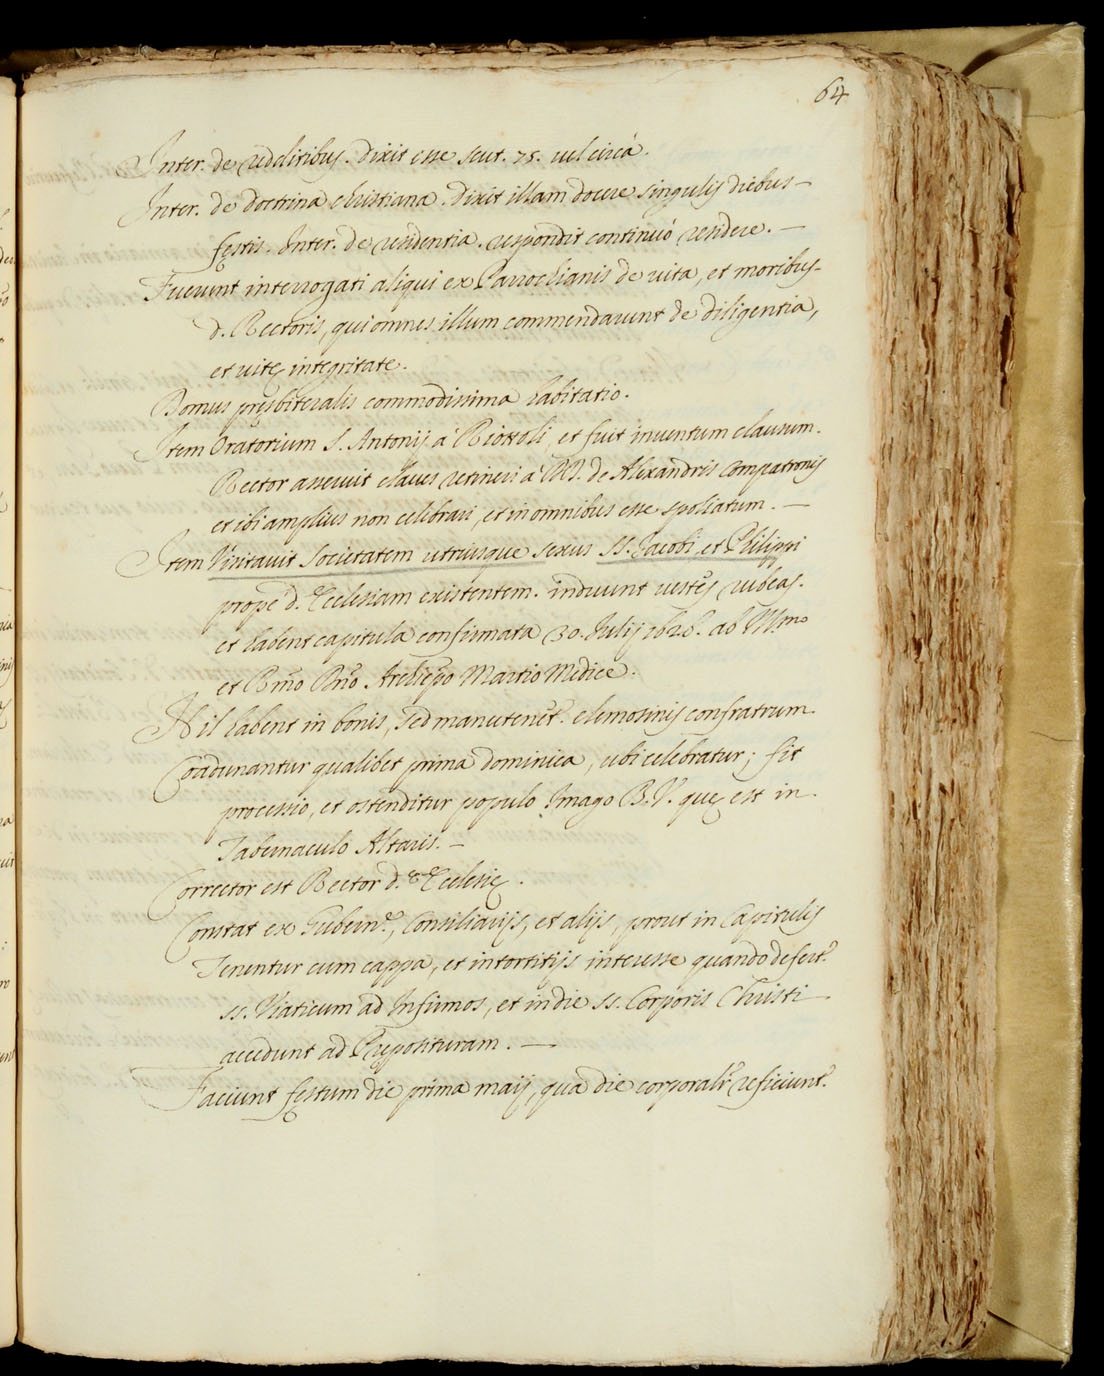 64
Inter. de redditibus. Dixit esse scut. 75. vel circà.
Inter. de doctrina christiana. Dixit illam docere singulis diebus
festis. Inter. de residentia. respondit continuò residere.
Fuerunt interrogati aliqui ex Parrochianis de uita, et moribus
d. Rectoris, qui omnes illum commendarunt de diligentia,
et uitę integritate.
Domus pręsbiteralis commodissima habitatio.
Item Oratorium S. Antonij à Riottoli, et fuit inuentum clausum.
Rector asseruit claues retineri à DD. de Alexandris Compatronis
et ibi amplius non celebrari, et in omnibus esse spoliatum.
Item Visitauit Societatem utriusque sexus SS. Jacobi, et Philippi
propè d. Ecclesiam existentem. induunt uestes rubeas.
et habent capitula confirmata 30. Julij ab Ill.mo
et R̃mo D̃no Archiep̃o Martio Medice.
Nil habent in bonis, sed manutenẽt.r elemosinis confratrum.
Coadunantur qualibet prima dominica, ubi celebratur; fit
processio, et ostenditur populo Imago B. V. quę est in
Tabernaculo Altaris.
Corrector est Rector d.ę Ecclesię.
Constat ex Gubern.e, Consiliarijs, et alijs, prout in Capitulis
Tenentur cum cappa, et intortitijs interesse quando defert.r
SS. Viaticum ad Infirmos, et in die SS. Corporis Christi
accedunt ad Pręposituram.
Faciunt festum die prima maij, qua die corporalr̃ reficiunt.r